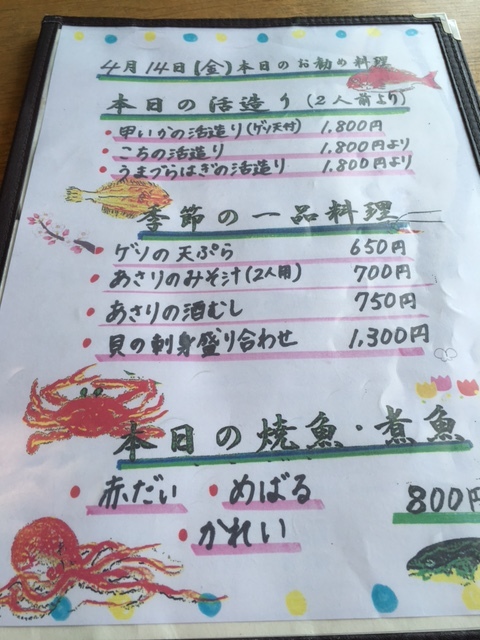 4月14日(金)本日のお勧め料理
本日の活造り(2人前より)
甲いかの活造り(ゲソ天付) 1,800円
こちの活造り 1,800円より
うまづらはぎの活造り 1,800円より
季節の一品料理
ゲソの天ぷら 650円
あさりのみそ汁(2人用) 700円
あさりの酒むし 750円
貝の刺身盛り合わせ 1,300円
本日の焼魚・煮魚
赤だい めばる 800円
かれい